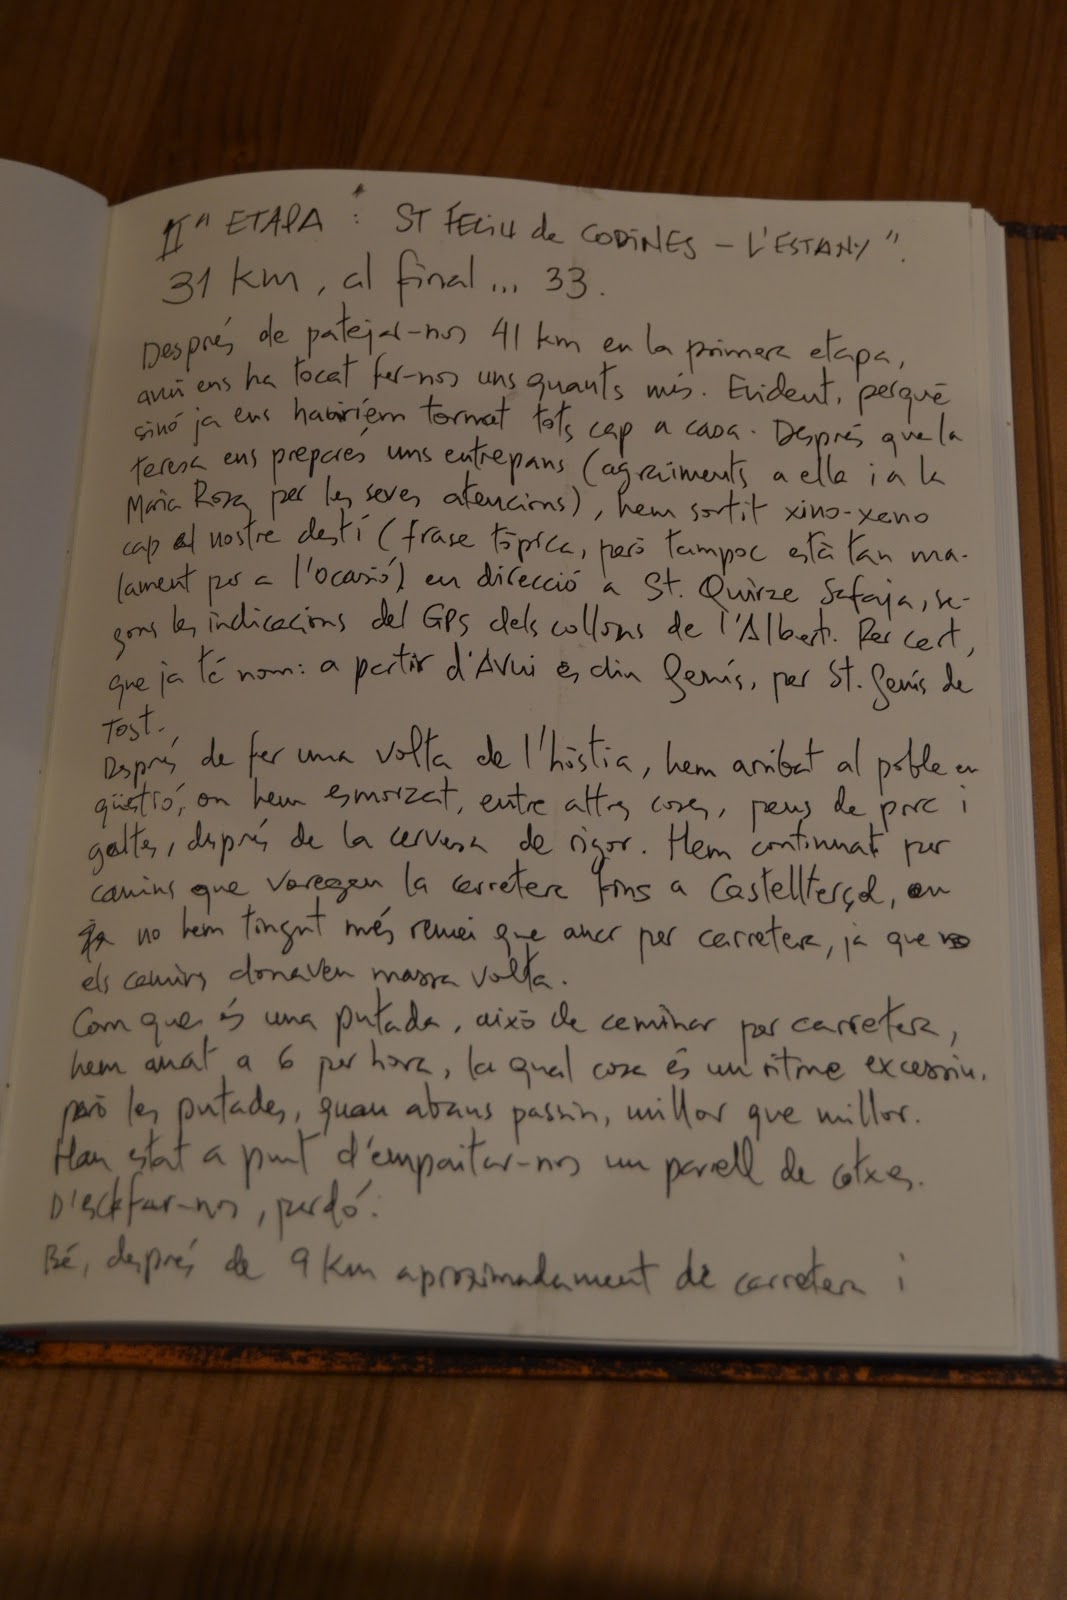 IIª ETAPA : ST FELIU de CODINES – L'ESTANY".
31 km, al final... 33.
Després de patejar-nos 41 km en la primera etapa,
avui ens ha tocat fer-nos uns quants més. Evident, perquè
sinó ja ens hauríem tornat tots cap a casa. Després que la
teresa ens preparés uns entrepans (agraïments a ella i a la
Maria Rosa per les seves atencions), hem sortit xino-xeno
cap al nostre destí (frase tòpica, però tampoc està tan ma-
lament per a l'ocasió) en direcció a St. Quirze Safaja, se-
gons les indicacions del GPS dels collons de l'Albert. Per cert,
que ja té nom: a partir d'Avui es diu Genís, per St. Genís de
Tost.
Després de fer una volta de l'hòstia, hem arribat al poble en
qüestió, on hem esmorzat, entre altres coses, peus de porc i
galtes, després de la cervesa de rigor. Hem continuat per
camins que voregen la carretera fins a Castellterçol, on
ja no hem tingut més remei que anar per carretera, ja que
els camins donaven massa volta.
Com que és una putada, això de caminar per carretera,
hem anat a 6 per hora, la qual cosa és un ritme excessiu.
però les putades, quan abans passin, millor que millor.
Han estat a punt d'empaitar-nos un parell de cotxes.
D'esclafar-nos, perdó.
Bé, després de 9 km aproximadament de carretera i